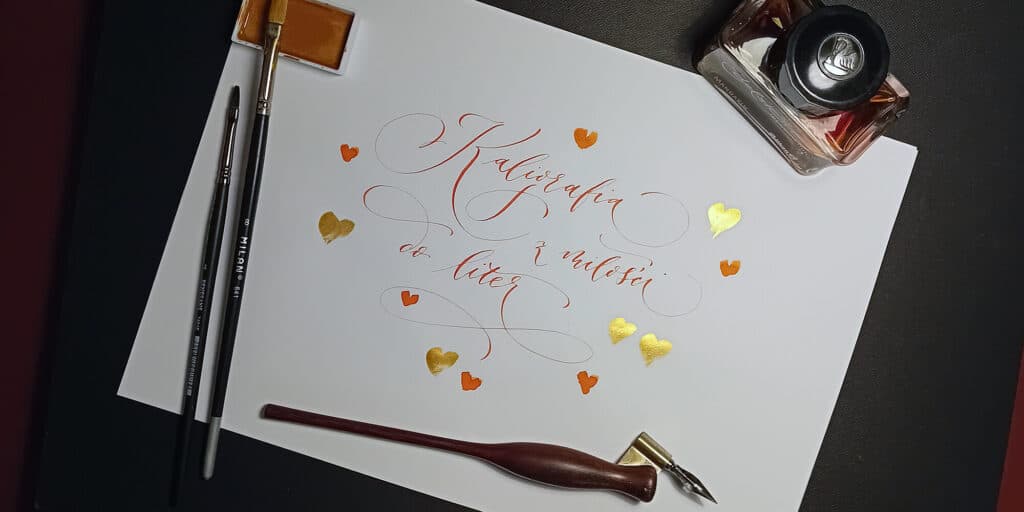 Kaligrafia
z miłości
do liter
8 MILAN® 641